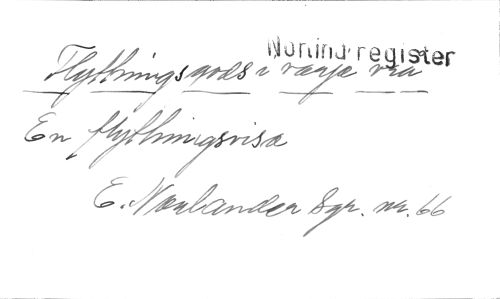 Norlind register
Flyttningsgods i varje vrå
En flyttningsvisa
E. Norlander Sgr. nr. 66